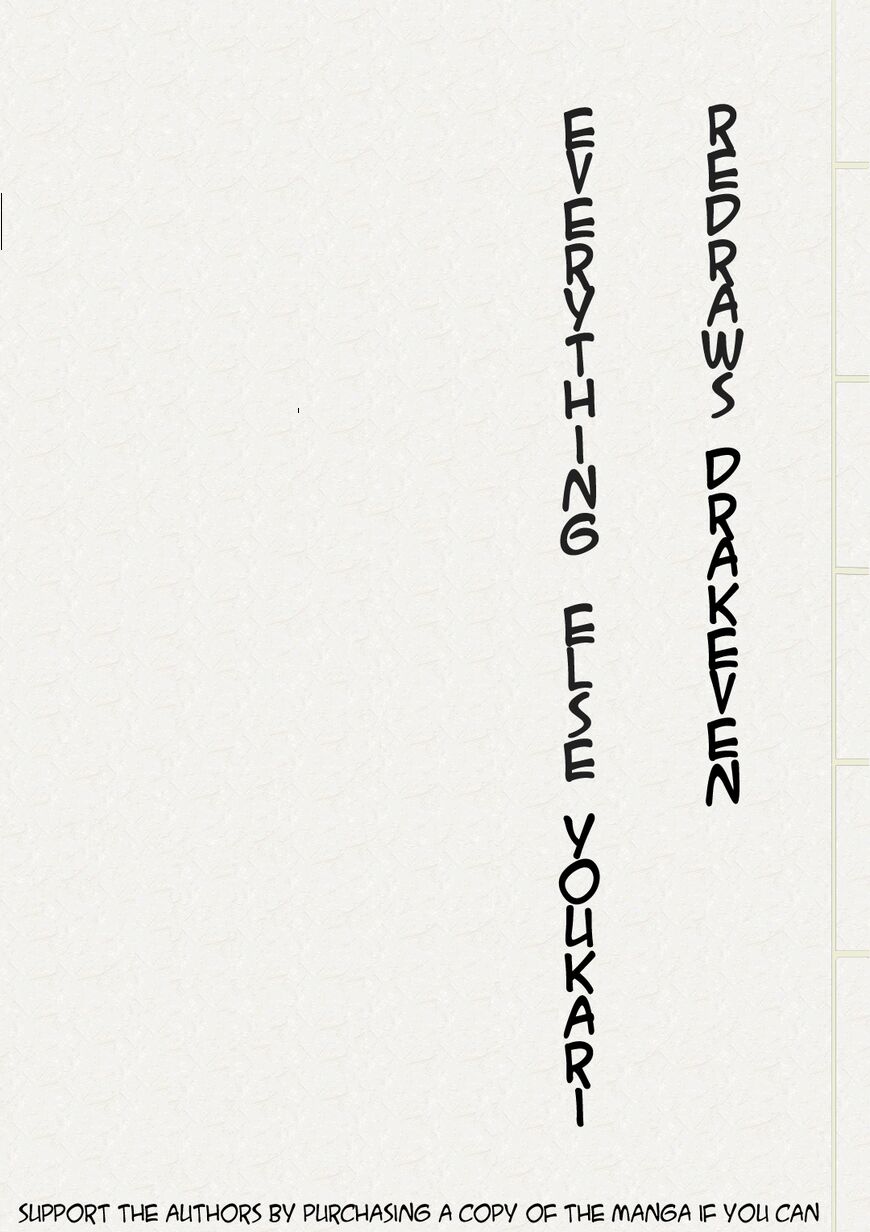 REDRAWS DRAKEVEN
EVERYTHING ELSE YOUKARI
SUPPORT THE AUTHORS BY PURCHASING A COPY OF THE MANGA IF YOU CAN